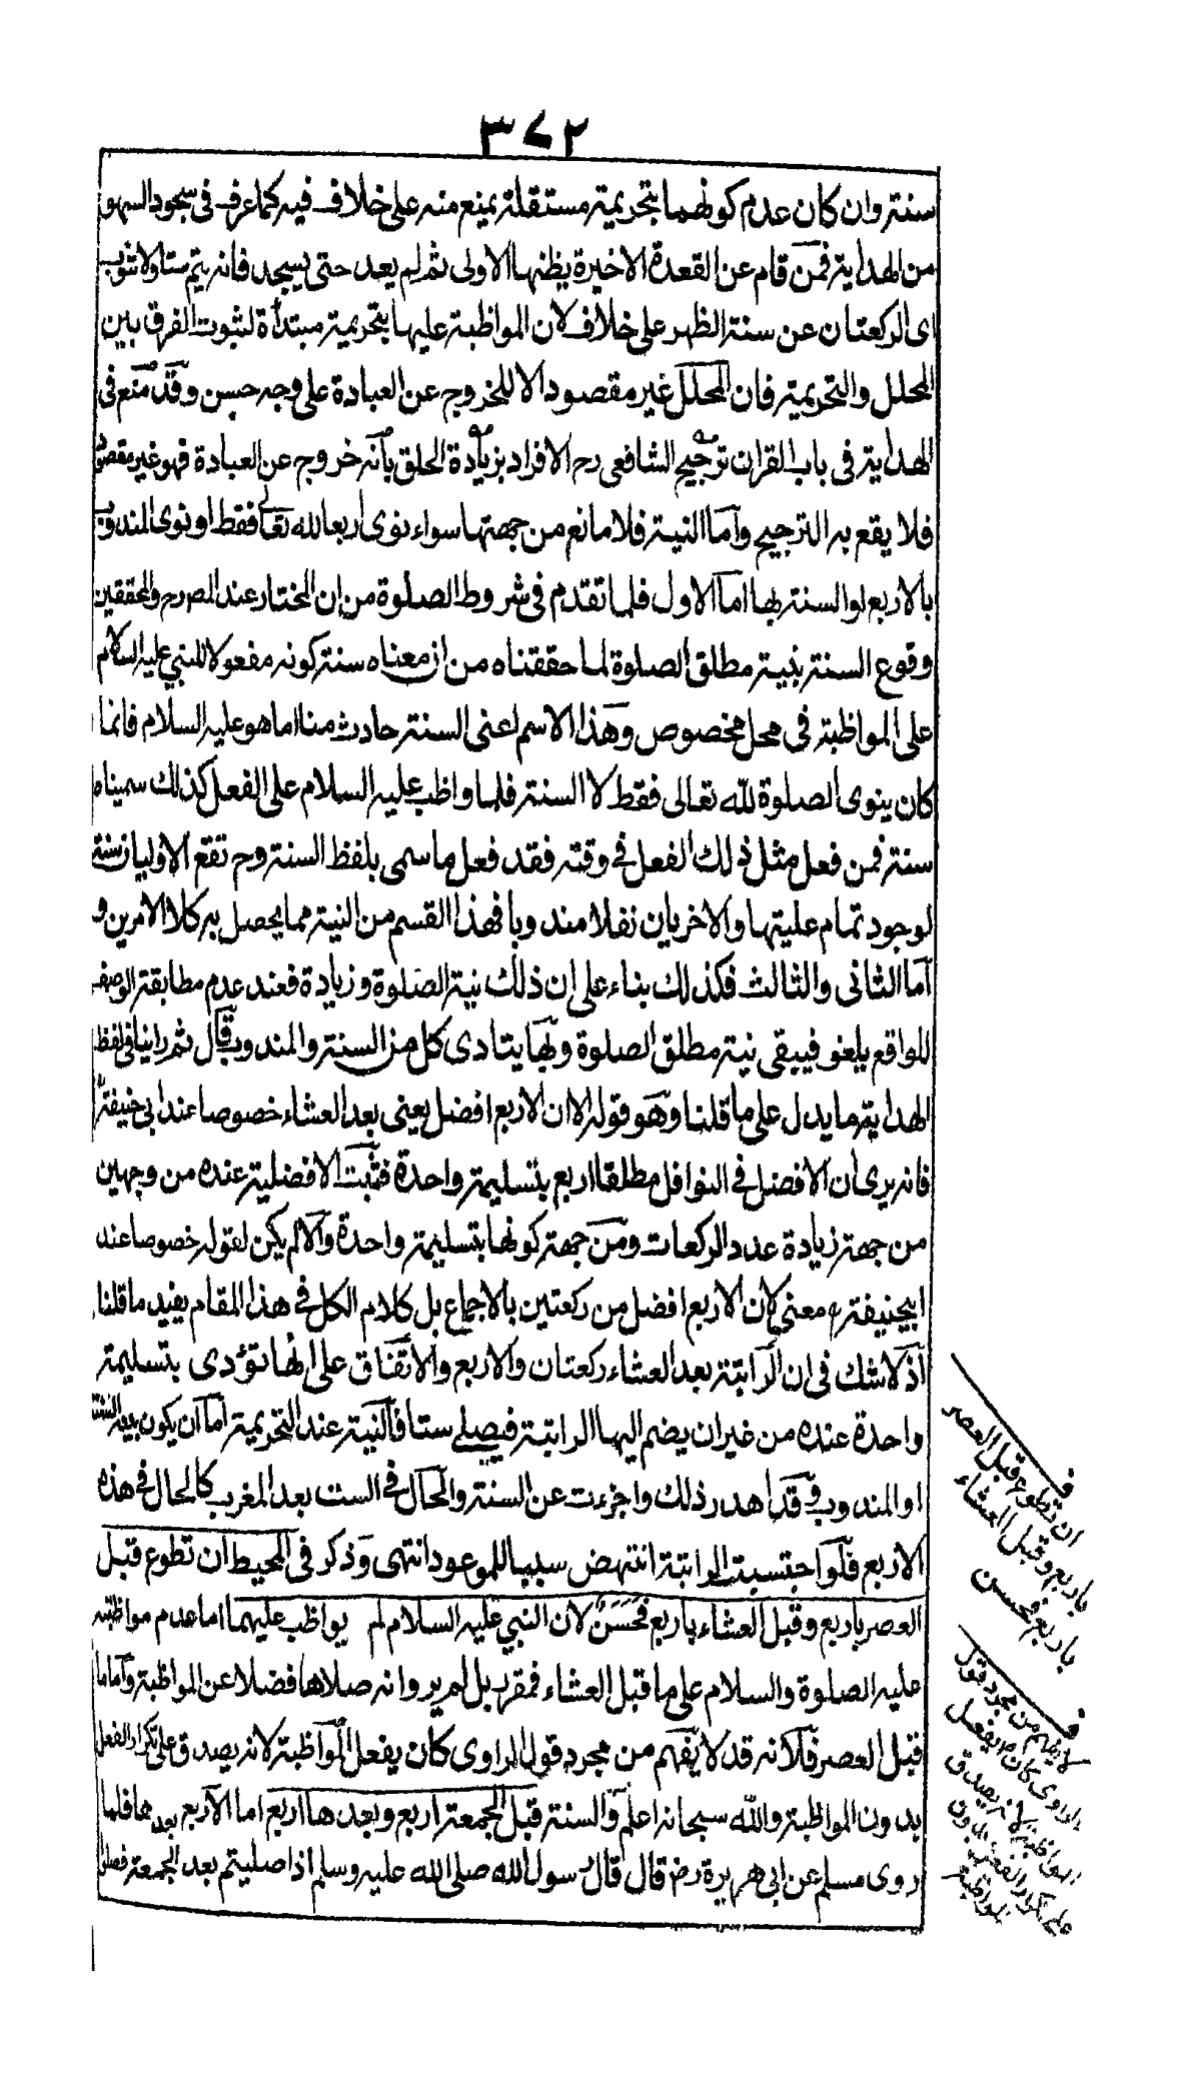 ٣٧٢
سنة وان كان عدم كونهما بتحريمة مستقلة يمنع منه على خلاف فيه كما عرف فى سجود السهو
من الهداية فمن قام عن القعدة الاخيرة يظنها الاولى ثم لم يعد حتى يسجد فانه يتم ستا ولا تنوب
اى الركعتان عن سنة الظهر على خلاف لان المواظبة عليها بتحريمة مبتدأة لثبوت الفرق بين
المحلل والتحريمة فان المحلل غير مقصود الا للخروج عن العبادة على وجه حسن وقد منع فى
الهداية فى باب القران ترجيح الشافعى رح الافراد بزيادة الحلق بانه خروج عن العبادة فهو غير مقصود
فلا يقع به الترجيح واما النية فلا مانع من جهتها سواء نوى اربعا لله تعالى فقط او نوى المندوب
بالاربع او السنة بها اما الاول فلما تقدم فى شروط الصلوة من ان المختار عند المص رح والمحققين
وقوع السنة بنية مطلق الصلوة لما حققناه من ان معناه سنة كونه مفعولا للنبي عليه السلام
على المواظبة فى محل مخصوص وهذا الاسم اعنى السنة حادث منا اما هو عليه السلام فانما
كان ينوى الصلوة لله تعالى فقط لا السنة فلما واظب عليه السلام على الفعل كذلك سميناه
سنة فمن فعل مثل ذلك الفعل فى وقته فقد فعل ما سمى بلفظ السنة وح تقع الاوليان سنة
لوجود تمام عليتها والاخريان نفلا مندوبا فهذا القسم من النية مما يحصل به كلا الامرين و
اما الثانى والثالث فكذلك بناء على ان ذلك نية الصلوة وزيادة فعند عدم مطابقة الوصف
للواقع يلغو فيبقى نية مطلق الصلوة وبها يتادى كل من السنة والمندوب قال ثم راينا فى لفظ
الهداية ما يدل على ما قلنا وهو قوله الا ان الاربع افضل يعنى بعد العشاء خصوصا عند ابى حنيفة رح
فانه يرى ان الافضل فى النوافل مطلقا اربع بتسليمة واحدة فتثبت الافضلية عنده من وجهين
من جهة زيادة عدد الركعات ومن جهة كونها بتسليمة واحدة والا لم يكن لقوله خصوصا عند
ابيحنيفة رح معنى لان الاربع افضل من ركعتين بالاجماع بل كلام الكل فى هذا المقام يفيد ما قلنا
اذ لا شك فى ان الراتبة بعد العشاء ركعتان والاربع والاتفاق على انها تؤدى بتسليمة
واحدة عنده من غير ان يضم اليها الراتبة فيصلى ستا فالنية عند التحريمة اما ان يكون بنية السنة
او المندوب وقد اهدر ذلك واجزءت عن السنة والحال فى الست بعد المغرب كالحال فى هذه
الاربع فلو احتسبت الراتبة انتهض سببا للموعود انتهى وذكر فى المحيط ان تطوع قبل
العصر باربع وقبل العشاء باربع فحسن لان النبي عليه السلام لم يواظب عليهما اما عدم مواظبته
عليه الصلوة والسلام على ما قبل العشاء فمقرر بل لم يرو انه صلاها فضلا عن المواظبة واما ما
قبل العصر فلانه قد لا يفهم من مجرد قول الراوى كان يفعل المواظبة لانه يصدق على تكرار الفعل
بدون المواظبة والله سبحانه اعلم والسنة قبل الجمعة اربع وبعدها اربع اما الاربع بعدها فلما
روى مسلم عن ابى هريرة رض قال قال رسول الله صلى الله عليه وسلم اذا صليتم بعد الجمعة فصلوا
ف
ان تطوع قبل العصر
باربع وقبل العشاء
باربع فحسن
ف
لا يفهم من مجرد قول
الراوى كان يفعل
المواظبة لانه يصدق
على تكرار الفعل بدون
المواظبة